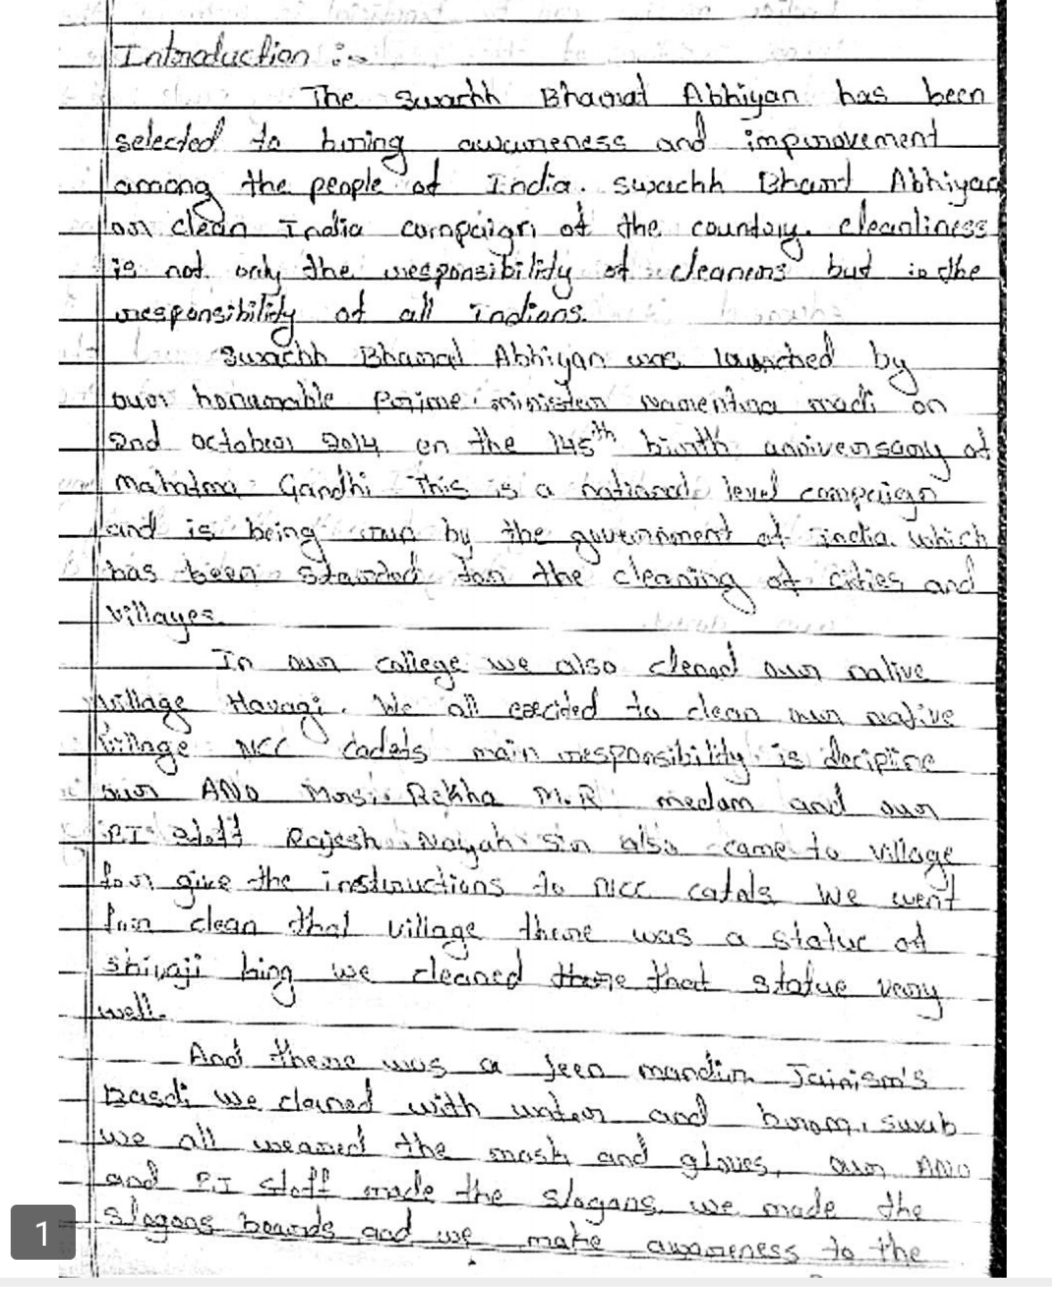 Introduction :-
The Swachh Bharat Abhiyan has been
selected to bring awareness and improvement
among the people of India. Swachh Bharat Abhiyan
or clean India campaign of the country. cleanliness
is not only the responsibility of cleaners but is the
responsibility of all Indians.
Swachh Bharat Abhiyan was launched by
our honurable Prime minister Narentina modi on
2nd october 2014 on the 145th birth anniversary of
Mahatma Gandhi This is a national level campaign
and is being run by the government of India. which
has been started for the cleaning of cities and
villages.
In our college we also clened our native
village Havagi. We all decided to clean our native
village NCC cadets main responsibility is deciplne
our ANO Mrs. Rekha M.R medam and our
P.I staff Rajesh Nayak Sir also came to village
for give the instructions to NCC catats We went
for clean that village there was a statue of
shivaji king we cleaned there that statue very
well.
And there was a Jeen mandir Jainism's
Basdi we claned with water and brom, swub
we all weared the mask and gloves, our ANO
and P.I staff made the slogans we made the
slogans boards and we make awareness to the
1